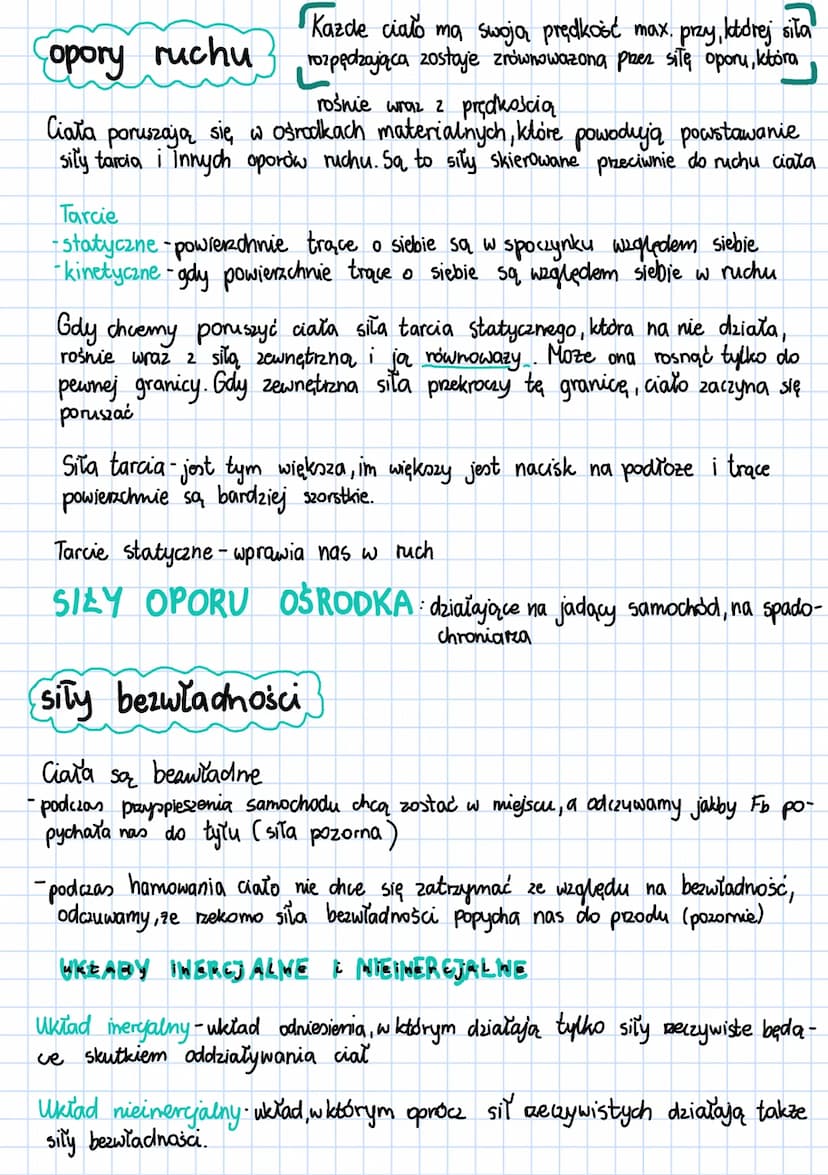 opory ruchu
Każde ciało ma swoją prędkość max. przy, której siła
rozpędzająca zostaje zrównoważona przez siłę oporu, która
rośnie wraz z prędkością
Ciała poruszają się w ośrodkach materialnych, które powodują powstawanie
siły tarcia i innych oporów ruchu. Są to siły skierowane przeciwnie do ruchu ciała
Tarcie
-statyczne - powierzchnie trące o siebie są w spoczynku względem siebie
-kinetyczne - gdy powierzchnie trące o siebie są względem siebie w ruchu
Gdy chcemy poruszyć ciała siła tarcia statycznego, która na nie działa,
rośnie wraz z siłą zewnętrzną i ją równoważy. Może ona rosnąć tylko do
pewnej granicy. Gdy zewnętrzna siła przekroczy tę granicę, ciało zaczyna się
poruszać
Siła tarcia - jest tym większa, im większy jest nacisk na podłoże i trące
powierzchnie są bardziej szorstkie.
Tarcie statyczne - wprawia nas w ruch
SIŁY OPORU OŚRODKA : działające na jadący samochód, na spado-
chroniarza
siły bezwładności
Ciała są bezwładne
- podczas przyspieszenia samochodu chcą zostać w miejscu, a odczuwamy jakby Fb po-
pychała nas do tyłu (siła pozorna)
- podczas hamowania ciało nie chce się zatrzymać ze względu na bezwładność,
odczuwamy, że rzekomo siła bezwładności popycha nas do przodu (pozornie)
UKŁADY INERCJALNE i NIEINERCJALNE
Układ inercjalny - układ odniesienia, w którym działają tylko siły rzeczywiste będą-
ce skutkiem oddziaływania ciał
Układ nieinercjalny - układ, w którym oprócz sił rzeczywistych działają także
siły bezwładności.